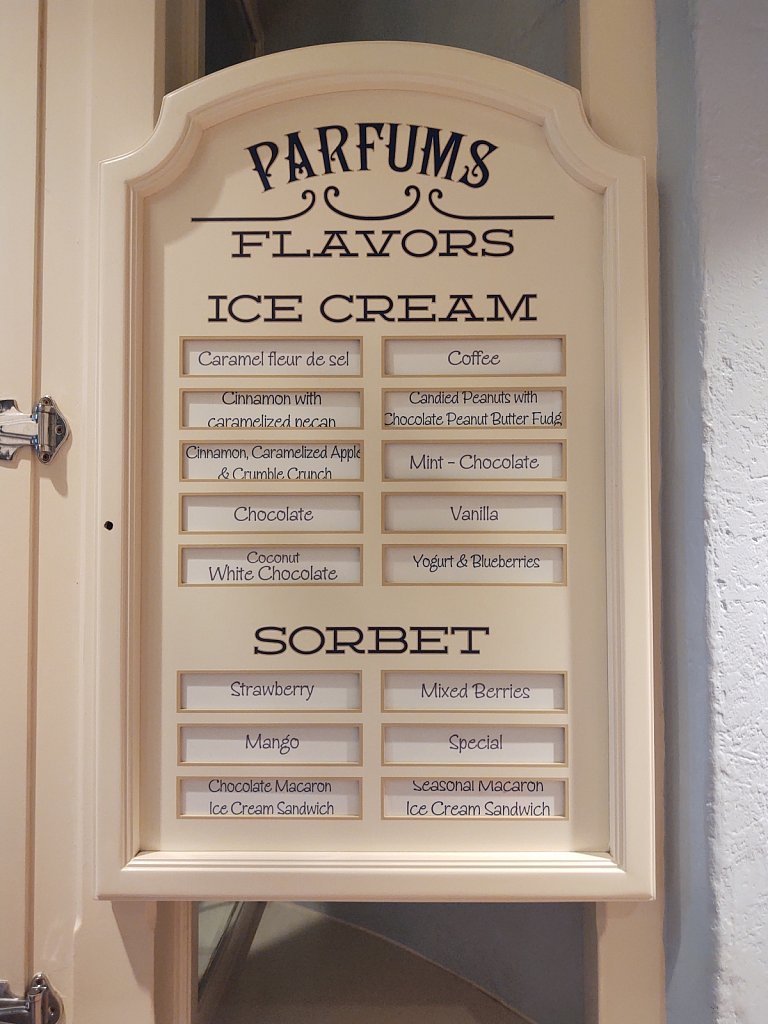 PARFUMS
FLAVORS
ICE CREAM
Caramel fleur de sel
Coffee
Cinnamon with
caramelized pecan
Candied Peanuts with
Chocolate Peanut Butter Fudg
Cinnamon, Caramelized Apple
& Crumble Crunch
Mint - Chocolate
Chocolate
Vanilla
Coconut
White Chocolate
Yogurt & Blueberries
SORBET
Strawberry
Mixed Berries
Mango
Special
Chocolate Macaron
Ice Cream Sandwich
Seasonal Macaron
Ice Cream Sandwich